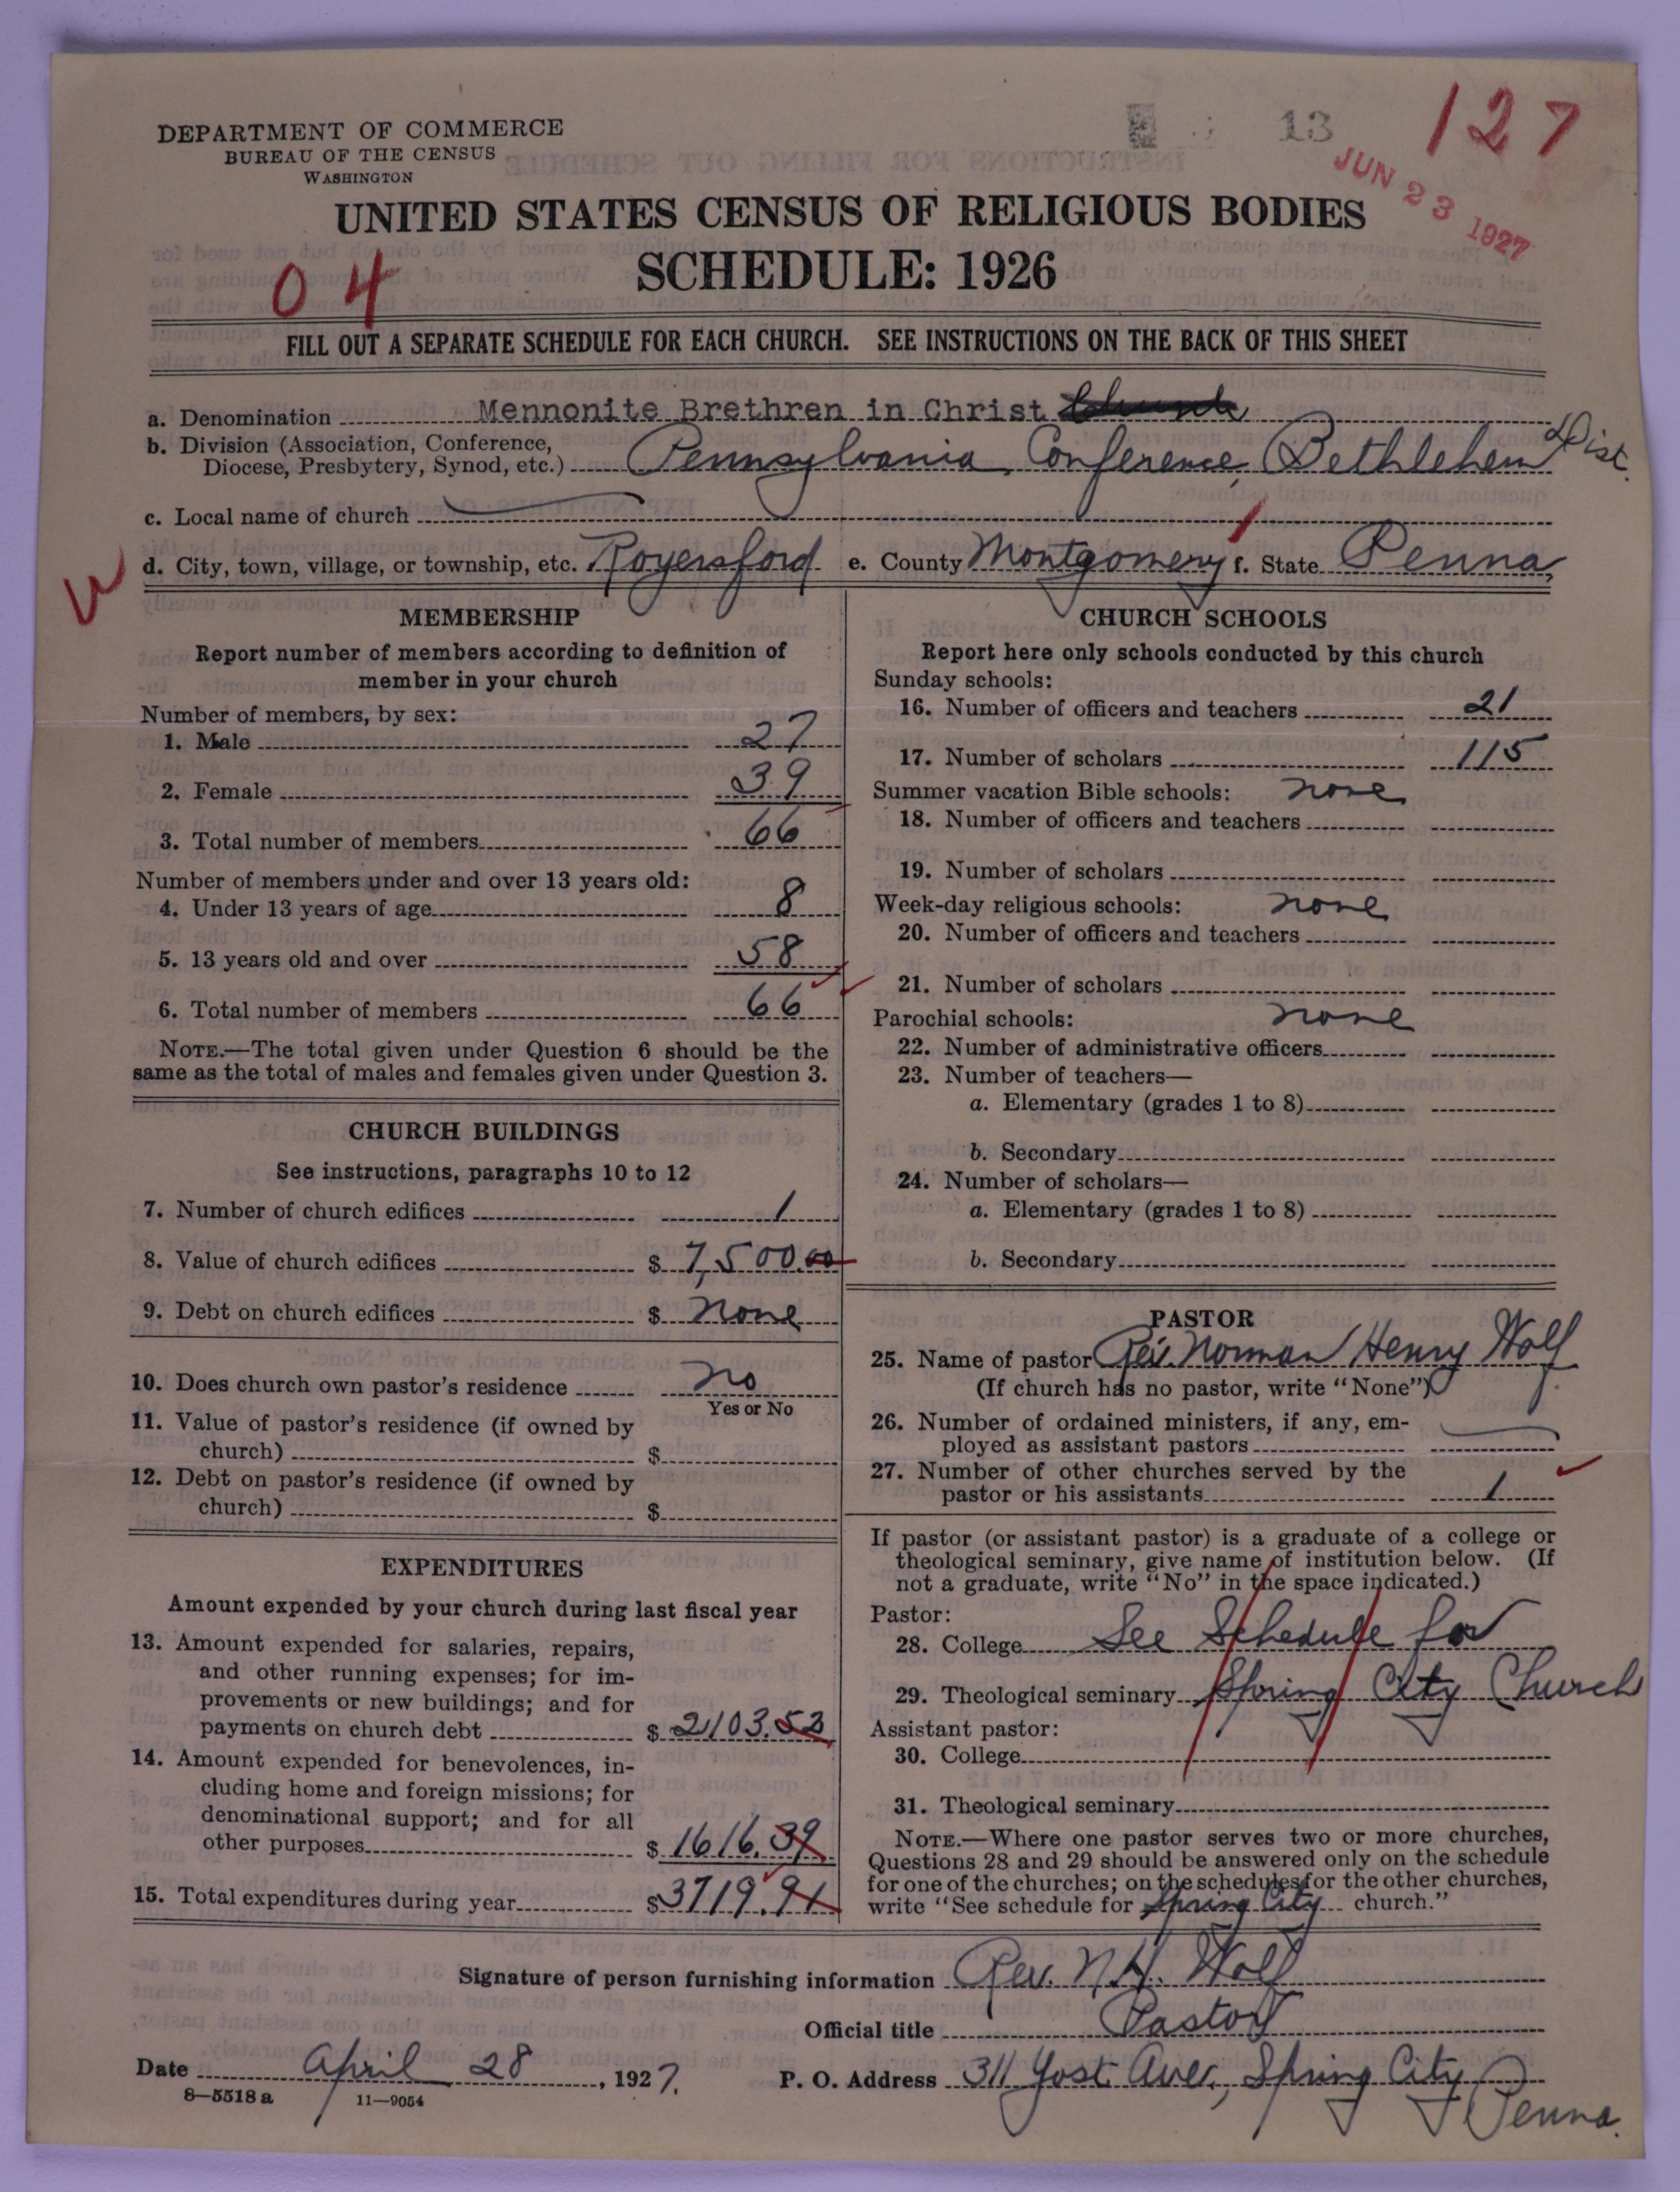 DEPARTMENT OF COMMERCE
BUREAU OF THE CENSUS
WASHINGTON
13
127
JUN 23 1927
UNITED STATES CENSUS OF RELIGIOUS BODIES
SCHEDULE: 1926
04
FILL OUT A SEPARATE SCHEDULE FOR EACH CHURCH. SEE INSTRUCTIONS ON THE BACK OF THIS SHEET
a. Denomination Mennonite Brethren in Christ
b. Division (Association, Conference,
Diocese, Presbytery, Synod, etc.) Pennsylvania Conference, Bethlehem Dist.
c. Local name of church
d. City, town, village, or township, etc. Royersford e. County Montgomery f. State Penna.
W
MEMBERSHIP
Report number of members according to definition of
member in your church
Number of members, by sex:
1. Male 27
2. Female 39
3. Total number of members 66
Number of members under and over 13 years old:
4. Under 13 years of age 8
5. 13 years old and over 58
6. Total number of members 66
NOTE.—The total given under Question 6 should be the
same as the total of males and females given under Question 3.
CHURCH BUILDINGS
See instructions, paragraphs 10 to 12
7. Number of church edifices 1
8. Value of church edifices $ 7,500.00
9. Debt on church edifices $ none
10. Does church own pastor's residence no
Yes or No
11. Value of pastor's residence (if owned by
church) $
12. Debt on pastor's residence (if owned by
church) $
EXPENDITURES
Amount expended by your church during last fiscal year
13. Amount expended for salaries, repairs,
and other running expenses; for im-
provements or new buildings; and for
payments on church debt $ 2103.52
14. Amount expended for benevolences, in-
cluding home and foreign missions; for
denominational support; and for all
other purposes $ 1616.39
15. Total expenditures during year $3719.91
CHURCH SCHOOLS
Report here only schools conducted by this church
Sunday schools:
16. Number of officers and teachers 21
17. Number of scholars 115
Summer vacation Bible schools: none
18. Number of officers and teachers
19. Number of scholars
Week-day religious schools: none
20. Number of officers and teachers
21. Number of scholars
Parochial schools: none
22. Number of administrative officers
23. Number of teachers—
a. Elementary (grades 1 to 8)
b. Secondary
24. Number of scholars—
a. Elementary (grades 1 to 8)
b. Secondary
PASTOR
25. Name of pastor Rev. Norman Henry Wolf
(If church has no pastor, write "None")
26. Number of ordained ministers, if any, em-
ployed as assistant pastors
27. Number of other churches served by the
pastor or his assistants 1
If pastor (or assistant pastor) is a graduate of a college or
theological seminary, give name of institution below. (If
not a graduate, write "No" in the space indicated.)
Pastor:
28. College See Schedule for
29. Theological seminary Spring City Church
Assistant pastor:
30. College
31. Theological seminary
NOTE.—Where one pastor serves two or more churches,
Questions 28 and 29 should be answered only on the schedule
for one of the churches; on the schedules for the other churches,
write "See schedule for Spring City church."
Signature of person furnishing information Rev. N.H. Wolf
Official title Pastor
Date April 28, 1927. P. O. Address 311 Yost Ave., Spring City
Penna.
8—5518 a 11—9054